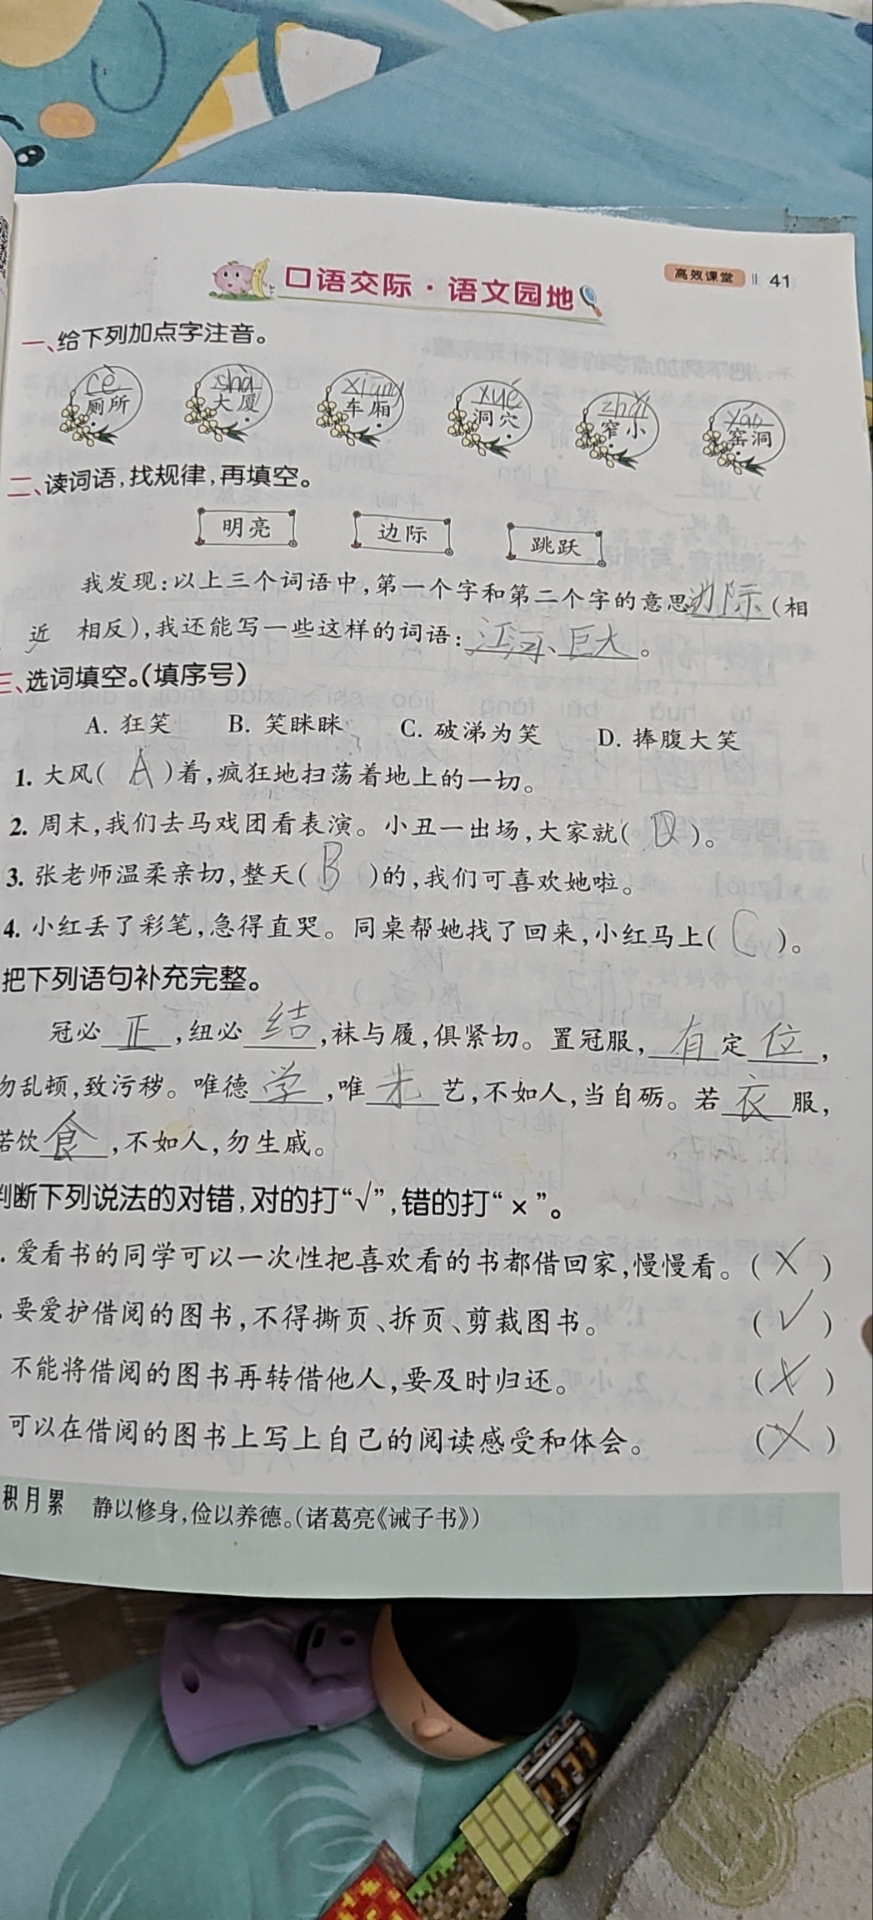 高效课堂 41
口语交际·语文园地
一、给下列加点字注音。
cè shà xiāng xué zhǎi yáo
厕所 大厦 车厢 洞穴 窄小 窑洞
二、读词语,找规律,再填空。
明亮 边际 跳跃
我发现:以上三个词语中,第一个字和第二个字的意思边际(相
近 相反),我还能写一些这样的词语:江河、巨大。
三、选词填空。(填序号)
A. 狂笑 B. 笑眯眯 C. 破涕为笑 D. 捧腹大笑
1. 大风( A )着,疯狂地扫荡着地上的一切。
2. 周末,我们去马戏团看表演。小丑一出场,大家就( D )。
3. 张老师温柔亲切,整天( B )的,我们可喜欢她啦。
4. 小红丢了彩笔,急得直哭。同桌帮她找了回来,小红马上( C )。
把下列语句补充完整。
冠必正,纽必结,袜与履,俱紧切。置冠服,有定位,
勿乱顿,致污秽。唯德学,唯才艺,不如人,当自砺。若衣服,
若饮食,不如人,勿生戚。
判断下列说法的对错,对的打“√”,错的打“×”。
.爱看书的同学可以一次性把喜欢看的书都借回家,慢慢看。( × )
.要爱护借阅的图书,不得撕页、拆页、剪裁图书。 ( √ )
不能将借阅的图书再转借他人,要及时归还。 ( × )
可以在借阅的图书上写上自己的阅读感受和体会。 ( × )
积月累 静以修身,俭以养德。(诸葛亮《诫子书》)